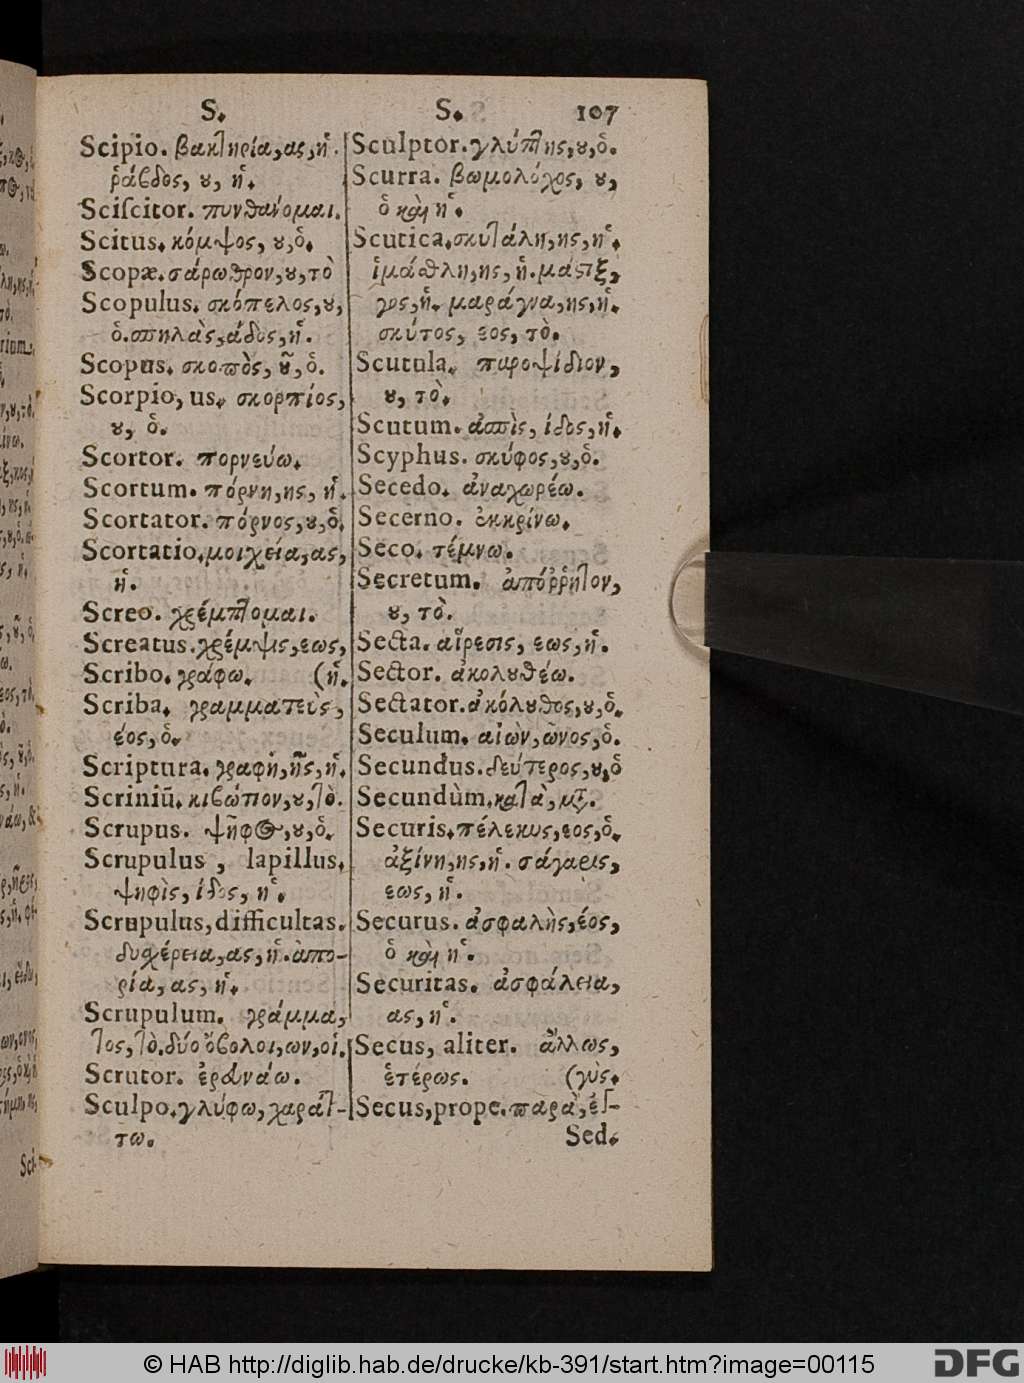 S. S. 107
Scipio. βακτηρία, ας, ἡ.
ῥάβδος, ου, ἡ.
Sciſcitor. πυνθάνομαι.
Scitus. κόμψος, ου, ὁ.
Scopæ. σάρωθρον, ου, τὸ
Scopulus. σκόπελος, ου,
ὁ. σπηλὰς, άδος, ἡ.
Scopus. σκοπὸς, οῦ, ὁ.
Scorpio, us. σκορπίος,
ου, ὁ.
Scortor. πορνεύω.
Scortum. πόρνη, ης, ἡ.
Scortator. πόρνος, ου, ὁ.
Scortatio. μοιχεία, ας,
ἡ.
Screo. χρέμπτομαι.
Screatus. χρέμψις, εως,
Scribo. γράφω. (ἡ.
Scriba. γραμματεὺς,
έος, ὁ.
Scriptura. γραφὴ, ῆς, ἡ.
Scriniū. κιβώτιον, ου, τὸ.
Scrupus. ψῆφος, ου, ὁ.
Scrupulus, lapillus.
ψηφὶς, ίδος, ἡ.
Scrupulus, difficultas.
δυσχέρεια, ας, ἡ. ἀπο-
ρία, ας, ἡ.
Scrupulum. γράμμα,
τος, τὸ. δύο ὄβολοι, ων, οἱ.
Scrutor. ἐρευνάω.
Sculpo. γλύφω, χαράτ-
τω.
Sculptor. γλύπτης, ου, ὁ.
Scurra. βωμολόχος, ου,
ὁ καὶ ἡ.
Scutica. σκυτάλη, ης, ἡ.
ἱμάθλη, ης, ἡ. μάστιξ,
γος, ἡ. μαράγνα, ης, ἡ.
σκύτος, εος, τὸ.
Scutula. παροψίδιον,
ου, τὸ.
Scutum. ἀσπὶς, ίδος, ἡ.
Scyphus. σκύφος, ου, ὁ.
Secedo. ἀναχωρέω.
Secerno. ἐκκρίνω.
Seco. τέμνω.
Secretum. ἀπόῤῥητον,
ου, τὸ.
Secta. αἵρεσις, εως, ἡ.
Sector. ἀκολουθέω.
Sectator. ἀκόλουθος, ου, ὁ.
Seculum. αἰὼν, ῶνος, ὁ.
Secundus. δεύτερος, ου, ὁ
Secundùm. κατὰ, μετ.
Securis. πέλεκυς, εος, ὁ.
ἀξίνη, ης, ἡ. σάγαρις,
εως, ἡ.
Securus. ἀσφαλὴς, έος,
ὁ καὶ ἡ.
Securitas. ἀσφάλεια,
ας, ἡ.
Secus, aliter. ἄλλως,
ἑτέρως. (γὺς.
Secus, prope. παρὰ, ἐγ-
Sed.
Sci-
© HAB http://diglib.hab.de/drucke/kb-391/start.htm?image=00115
DFG